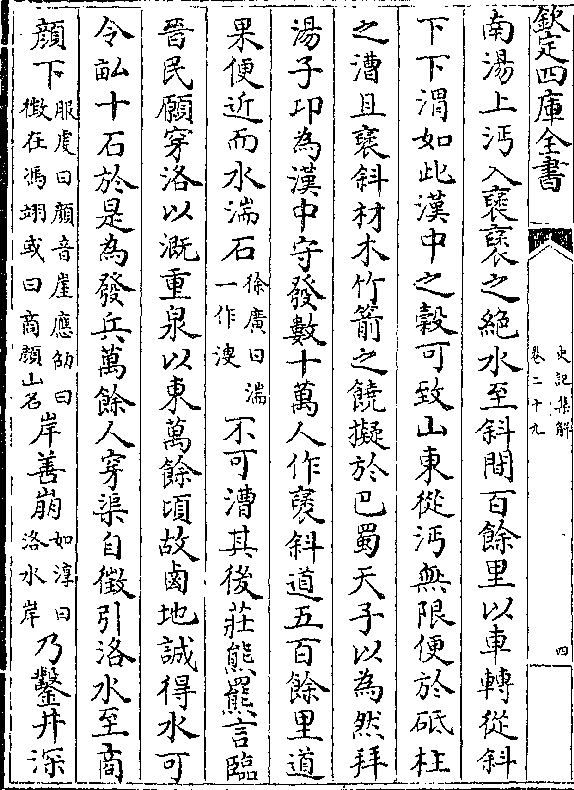 欽定四庫全書
史記集解
卷二十九
四
南湯上沔入褒褒之絶水至斜間百餘里以車轉從斜
下下渭如此漢中之穀可致山東從沔無限便於砥柱
之漕且褒斜材木竹箭之饒擬於巴蜀天子以為然拜
湯子卬為漢中守發數十萬人作褒斜道五百餘里道
果便近而水湍石徐廣曰湍一作溲不可漕其後莊熊羆言臨
晉民願穿洛以溉重泉以東萬餘頃故鹵地誠得水可
令畝十石於是為發兵萬餘人穿渠自徵引洛水至商
顔下服虔曰顔音崖應劭曰徵在馮翊或曰商顔山名岸善崩如淳曰洛水岸乃鑿井深